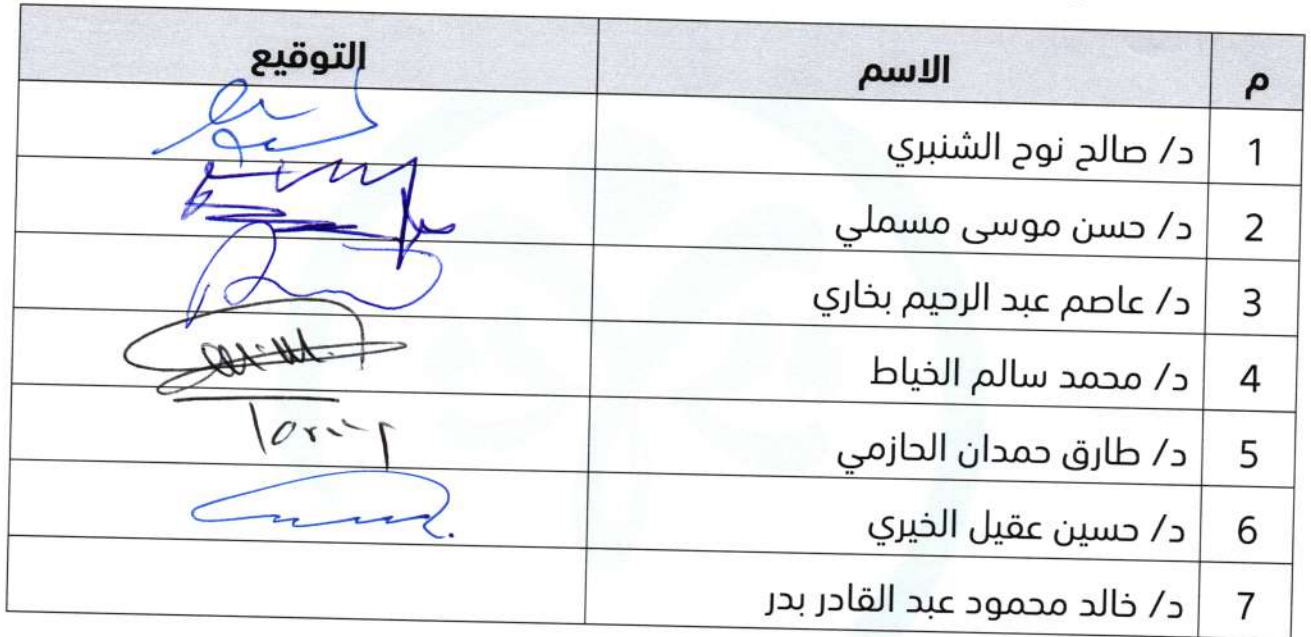 م الاسم التوقيع
1 د/ صالح نوح الشنبري
2 د/ حسن موسى مسملي
3 د/ عاصم عبد الرحيم بخاري
4 د/ محمد سالم الخياط
5 د/ طارق حمدان الحازمي
6 د/ حسين عقيل الخيري
7 د/ خالد محمود عبد القادر بدر